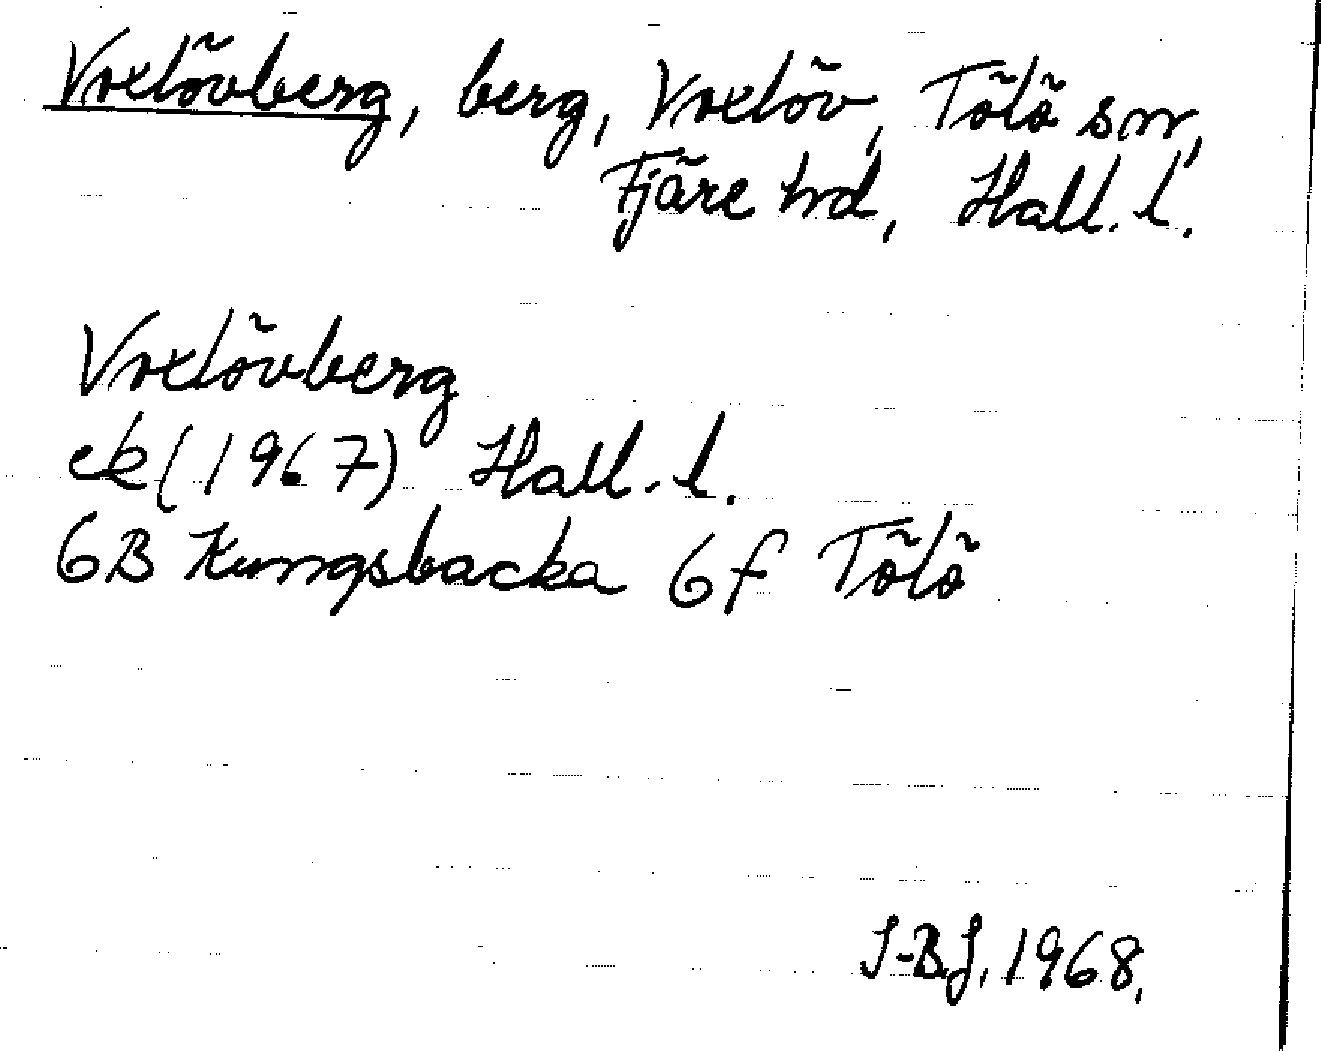 Voxlövberg, berg, Voxlöv, Tölö sn,
Fjäre hd, Hall. l.
Voxlövberg
ek (1967) Hall. l.
6B Kungsbacka 6f Tölö
I-B.J. 1968.